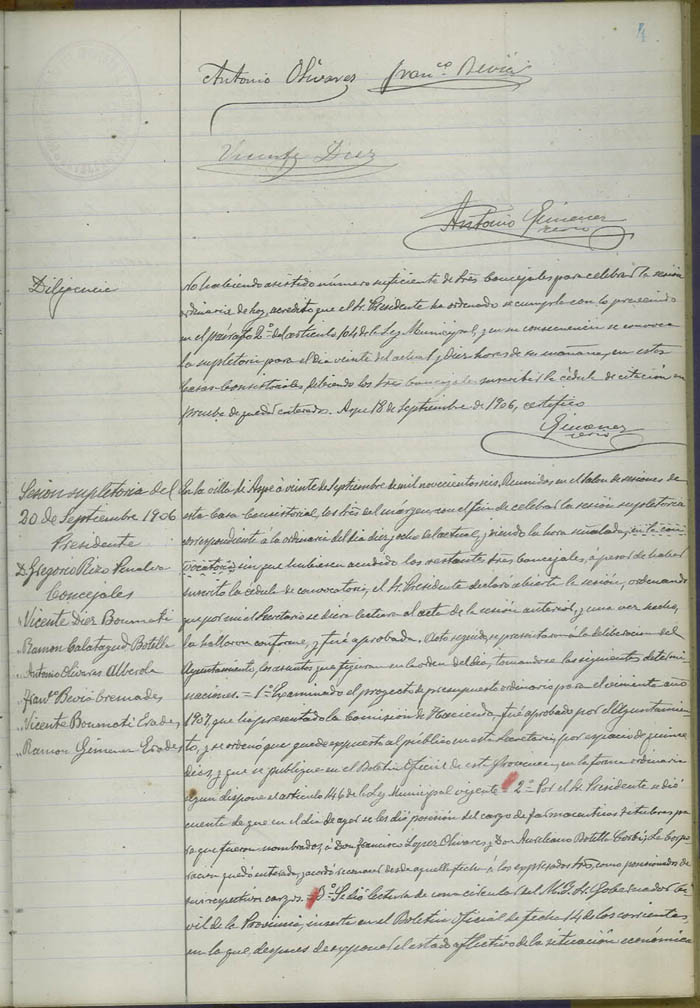 4
Antonio Olivares Franco Beviá
Vicente Diez
Antonio Gimenez
Diligencia
No habiendo asistido número suficiente de Sres Concejales para celebrar la sesión
ordinaria de hoy, acredito que el Sr. Presidente ha ordenado se cumpla con lo prevenido
en el párrafo 2º del artículo 104 de la Ley Municipal, y en su consecuencia se convoca
la supletoria para el dia veinte del actual y diez horas de su mañana, en estas
Casas Consistoriales, debiendo los Sres Concejales suscribir la cédula de citación en
prueba de quedar enterados. Aspe 18 de Septiembre de 1906, certifico
Gimenez
Sesion supletoria del
20 de Septiembre 1906
Presidente
D. Gregorio Rizo Penalva
Concejales
" Vicente Diez Boumati
" Ramon Calatayud Botella
" Antonio Olivares Alberola
" Franco Beviá Cremades
" Vicente Boumati Erades
" Ramon Gimenez Erades
En la villa de Aspe á veinte de Septiembre de mil novecientos seis. Reunidos en el Salon de sesiones de
esta Casa Consistorial, los Sres del márgen, con el fin de celebrar la sesión supletoria
correspondiente á la ordinaria del dia diez y ocho del actual, y siendo la hora señalada en la con
vocatoria, sin que hubiesen acudido los restantes Sres Concejales, á pesar de haber
suscrito la cédula de convocatoria, el Sr. Presidente declaró abierta la sesión, ordenando
que por mi el Secretario se diera lectura al acta de la sesión anterior, y una vez hecho,
la hallaron conforme, y fué aprobada. Acto seguido, se presentaron á la deliberacion del
Ayuntamiento, los asuntos que figuran en la orden del dia, tomandose las siguientes determi
naciones. = 1º Examinado el proyecto de presupuesto ordinario para el viniente año
1907, que ha presentado la Comisión de Hacienda, fué aprobado por el Ayuntamien
to, y se ordenó que quede expuesto al público en esta Secretaria, por espacio de quince
dias, y que se publique en el Boletin Oficial de esta Provincia, en la forma ordinaria
segun dispone el artículo 146 de la Ley Municipal vigente = 2º Por el Sr. Presidente se dió
cuenta de que en el dia de ayer se les dió posesión del cargo de farmaceuticos titulares pa
ra que fueron nombrados, á Don Francisco Lopez Olivares, y Don Aureliano Botella Corbi; La Corpo
racion quedó enterada, y acordó reconocer desde aquella fecha á los expresados Sres como posesionados de
sus respectivos cargos. = 3º Se dió lectura de una circular del M. I. Sr. Gobernador Ci
vil de la Provincia, inserta en el Boletin Oficial de fecha 14 de los corrientes,
en la que, despues de exponer el estado aflictivo de la situación económica